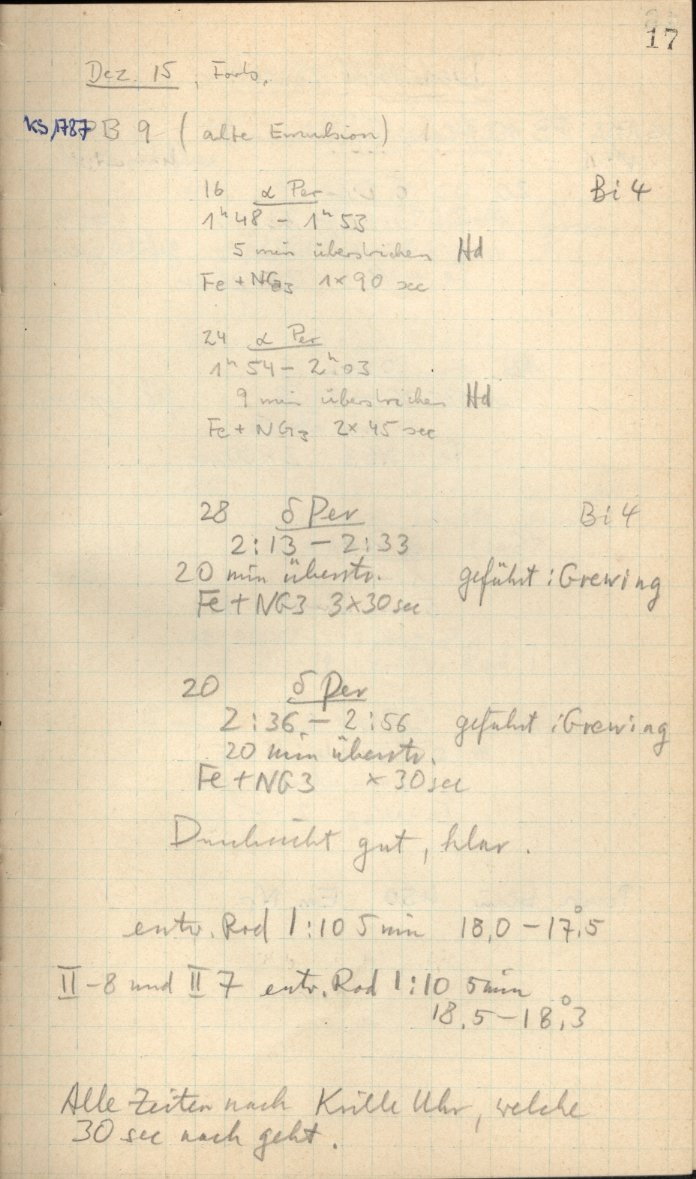 17
Dez. 15, Forts.
KS,1787 PB 9 (alte Emulsion)
16 α Per Bi 4
1ʰ48 – 1ʰ53
5 min überstrichen Hd
Fe + NG3 1×90 sec
24 α Per
1ʰ54 – 2ʰ03
9 min überstrichen Hd
Fe + NG3 2×45 sec
28 δ Per Bi 4
2:13 – 2:33
20 min überstr. geführt: Grewing
Fe + NG3 3×30 sec
20 δ Per
2:36 – 2:56 geführt: Grewing
20 min überstr.
Fe + NG3 × 30 sec
Durchsicht gut, klar.
entw. Rod 1:10 5 min 18,0 – 17°,5
II-8 und II 7 entw. Rod 1:10 5 min
18,5 – 18°,3
Alle Zeiten nach Krille Uhr, welche
30 sec nach geht.